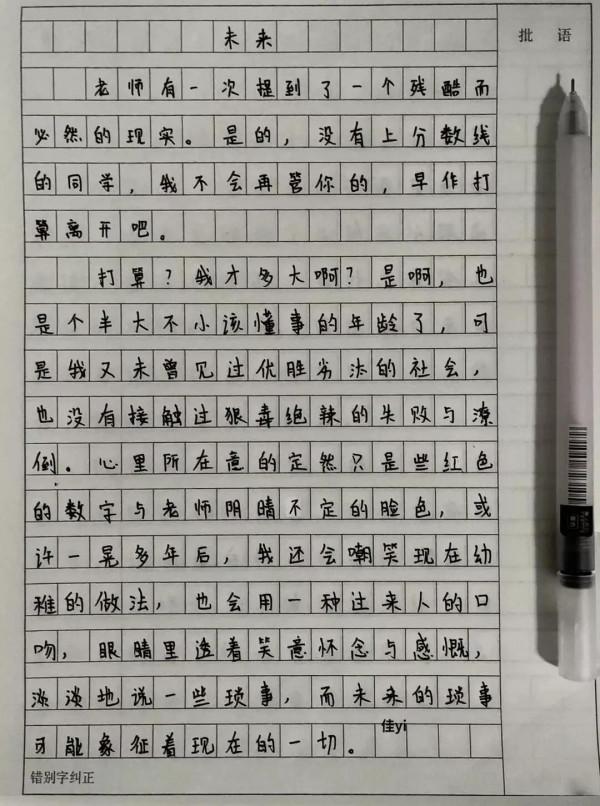 未来
批语
老师有一次提到了一个残酷而
必然的现实。是的，没有上分数线
的同学，我不会再管你的，早作打
算离开吧。
打算？我才多大啊？是啊，也
是个半大不小该懂事的年龄了，可
是我又未曾见过优胜劣汰的社会，
也没有接触过狠毒绝辣的失败与潦
倒。心里所在意的定然只是些红色
的数字与老师阴晴不定的脸色，或
许一晃多年后，我还会嘲笑现在幼
稚的做法，也会用一种过来人的口
吻，眼睛里透着笑意怀念与感慨，
淡淡地说一些琐事，而未来的琐事
可能象征着现在的一切。
佳yi
错别字纠正